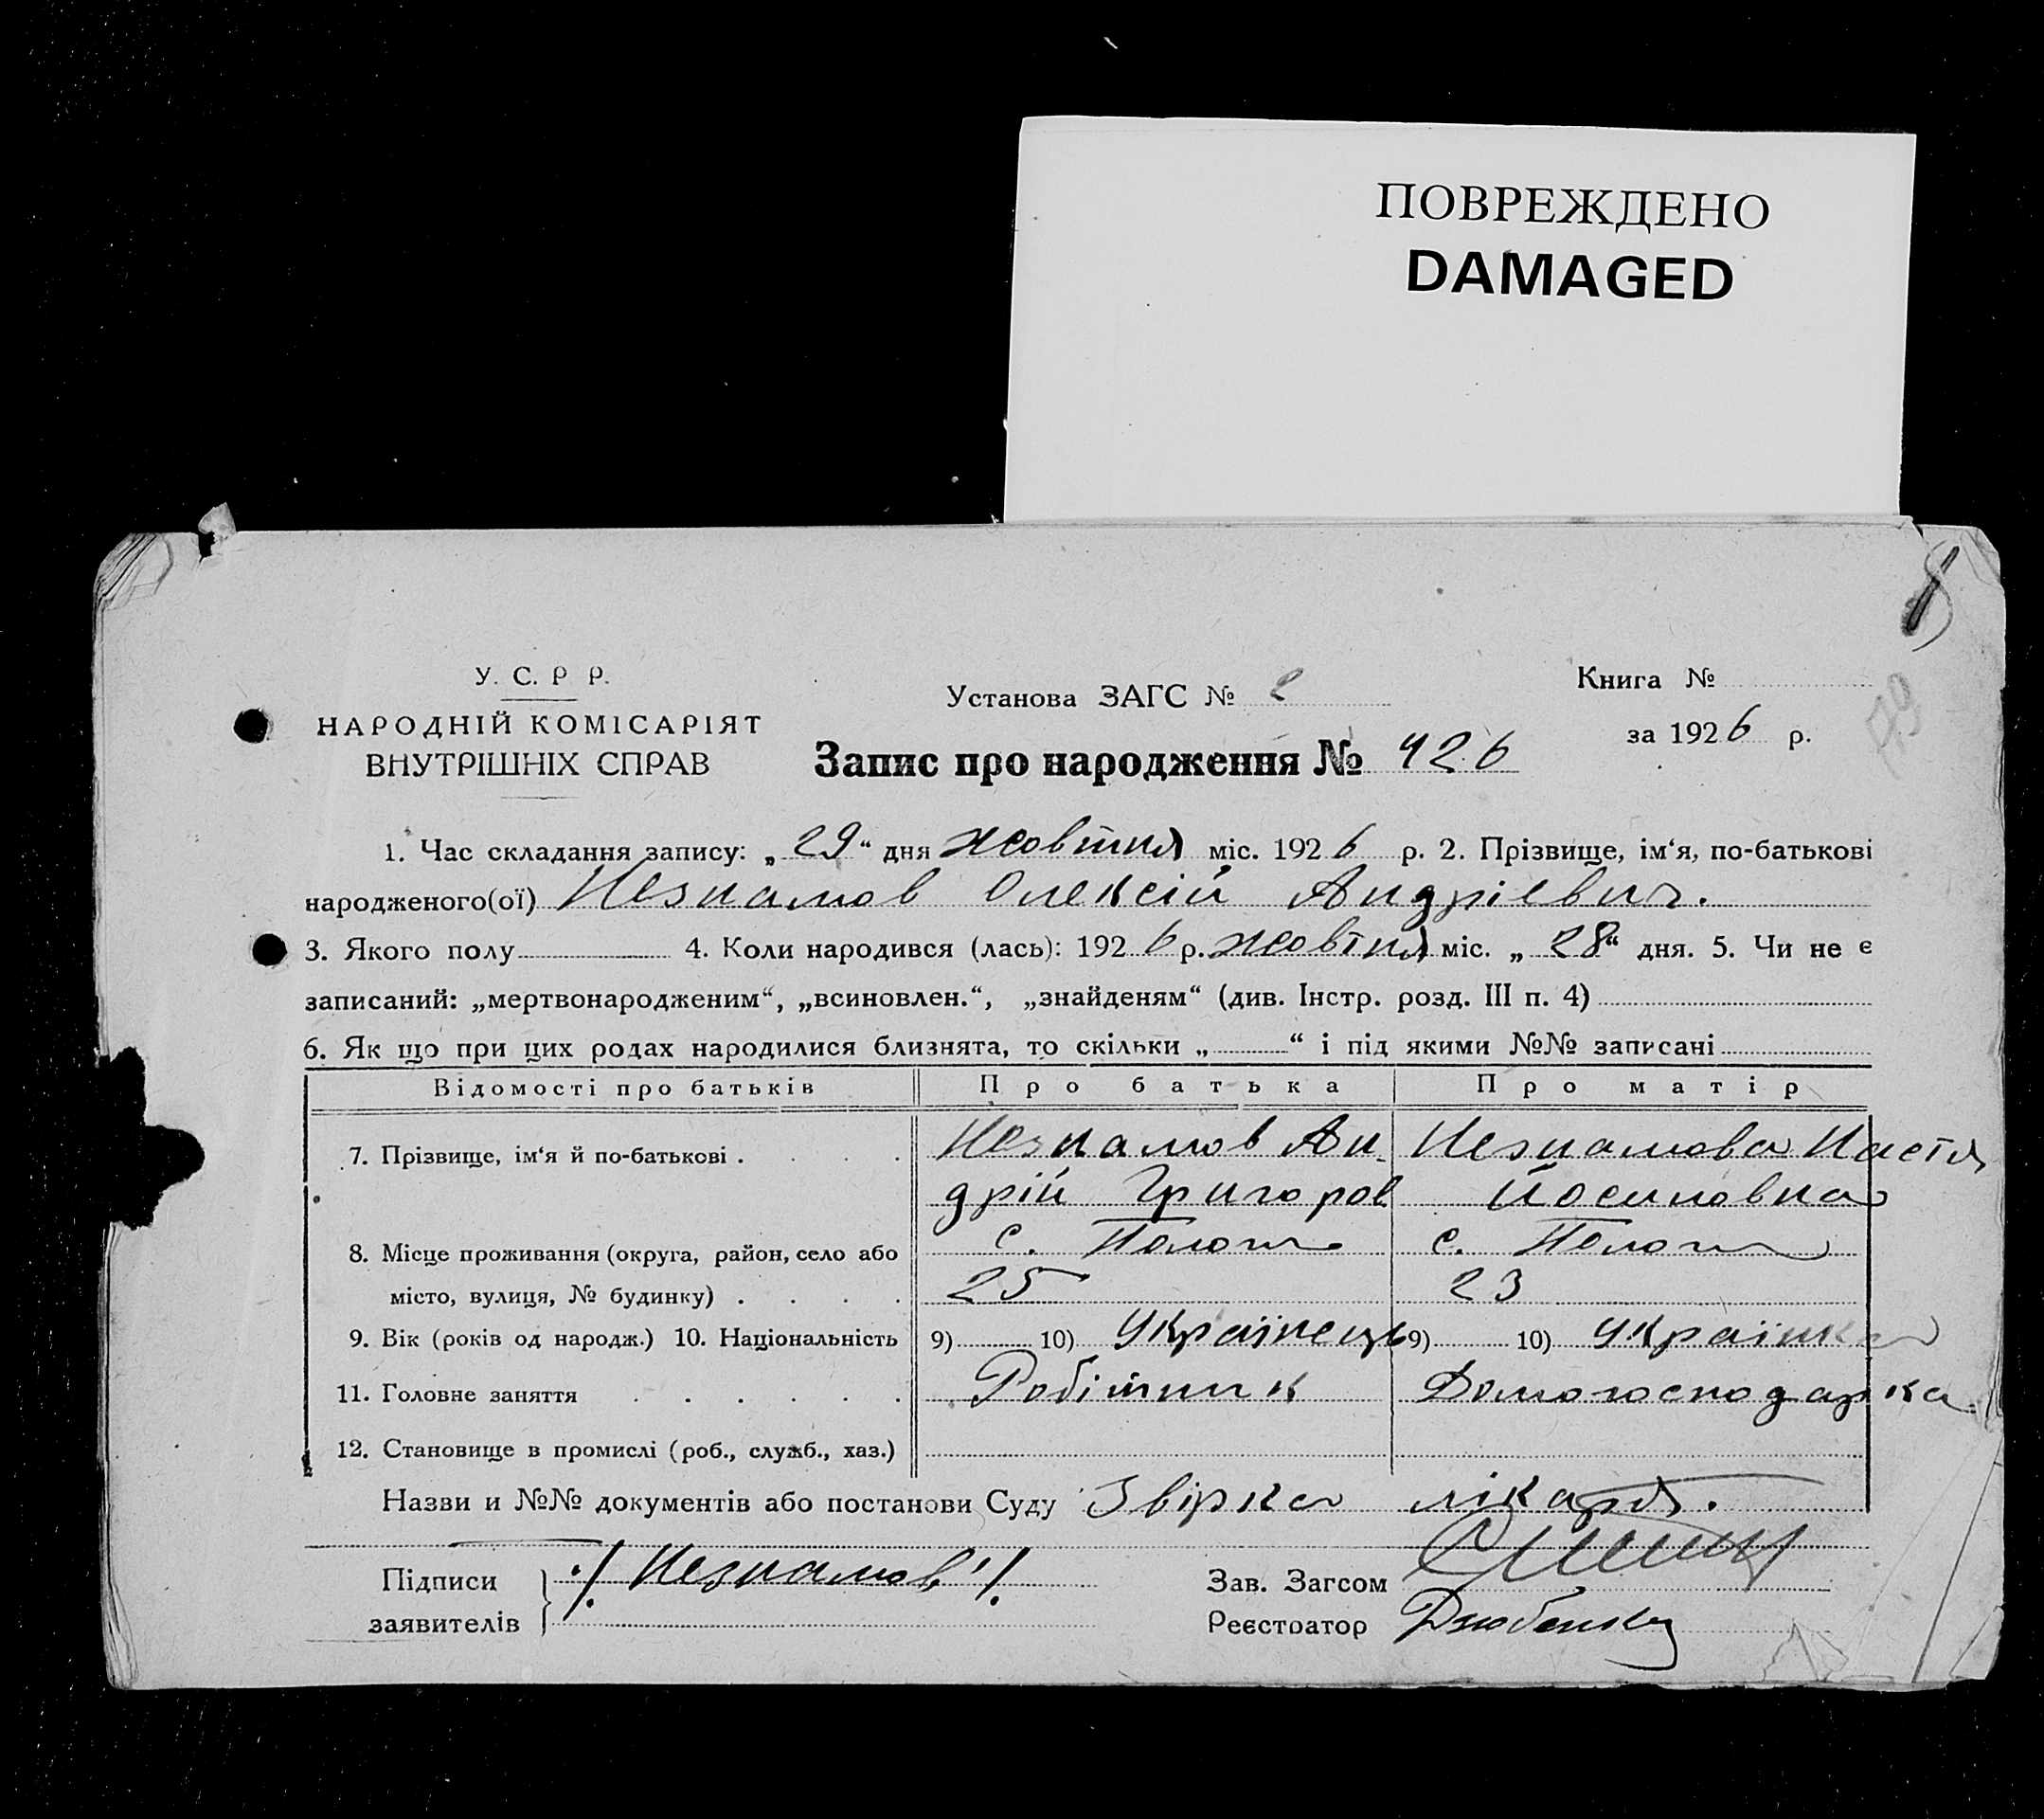 ПОВРЕЖДЕНО
DAMAGED
У. С. Р. Р.
НАРОДНІЙ КОМІСАРІЯТ
ВНУТРІШНІХ СПРАВ
Установа ЗАГС № 2
Запис про народження № 426
Книга №
за 1926 р.
1. Час складання запису: „29“ дня жовтня міс. 1926 р. 2. Прізвище, ім‘я, по-батькові
народженого(ої) Незнамов Олексій Андрієвич.
3. Якого полу 4. Коли народився (лась): 1926 р. жовтня міс. „28“ дня. 5. Чи не є
записаний: „мертвонародженим“, „всиновлен.“, „знайденям“ (див. Інстр. розд. III п. 4)
6. Як що при цих родах народилися близнята, то скільки „ “ і під якими №№ записані
Відомості про батьків Про батька Про матір
7. Прізвище, ім‘я й по-батькові . . . . Незнамов Ан- Незнамова Настя
дрій Григоров Йосиповна
8. Місце проживання (округа, район, село або с. Пологи с. Пологи
місто, вулиця, № будинку) . . . . 25 23
9. Вік (років од народж.) 10. Національність 9) 10) Українець 9) 10) Українка
11. Головне заняття . . . . . . Робітник Домогосподарка
12. Становище в промислі (роб., служб., хаз.)
Назви и №№ документів або постанови Суду Звірка лікаря.
Підписи ./. Незнамов ./.
заявителів
Зав. Загсом
Реєстратор